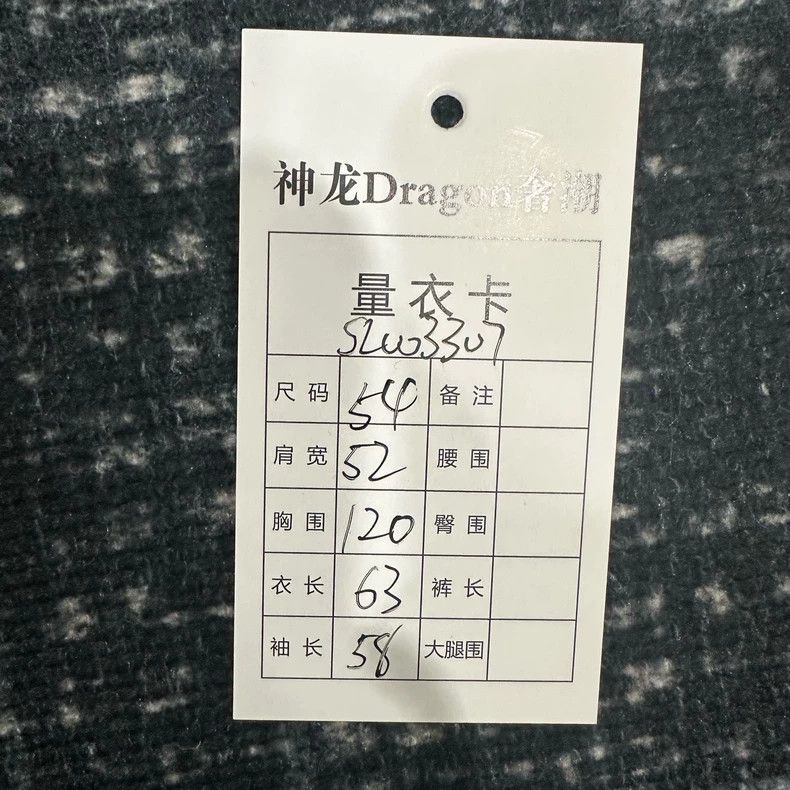 神龙Dragon奢潮
量衣卡
SL003307
尺码 54 备注
肩宽 52 腰围
胸围 120 臀围
衣长 63 裤长
袖长 58 大腿围